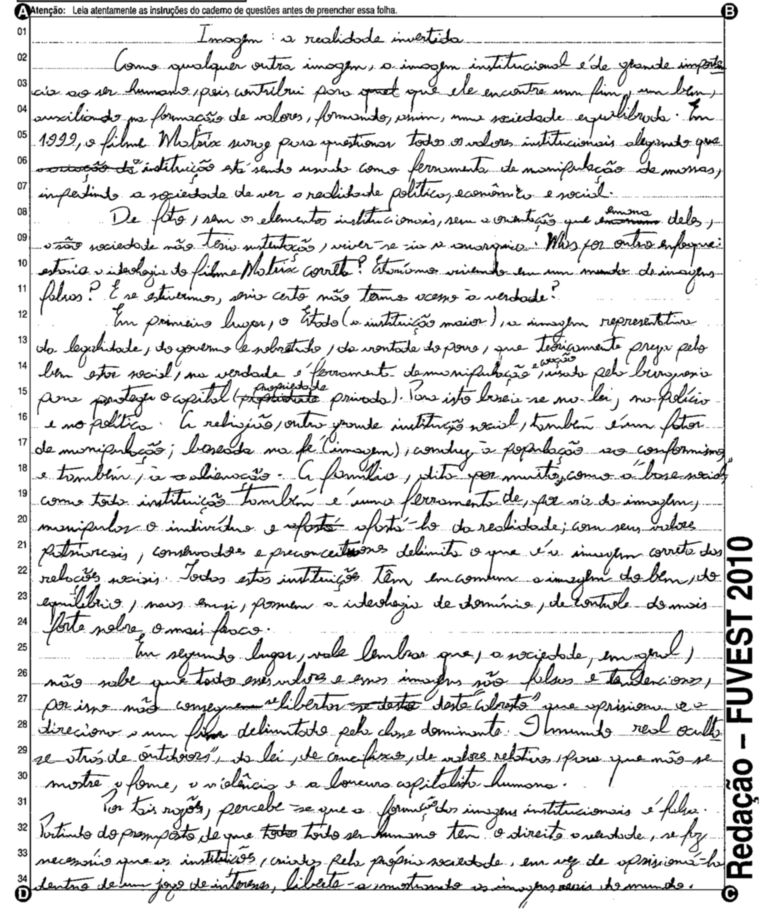 Atenção: Leia atentamente as instruções do caderno de questões antes de preencher essa folha.
A
B
01 Imagem: a realidade invertida
02 Como qualquer outra imagem, a imagem institucional é de grande importân
03 cia ao ser humano, pois contribui para que ele encontre um fim, um bem,
04 auxiliando na formação de valores, formando, assim, uma sociedade equilibrada. Em
05 1999, o filme Matrix surge para questionar todos os valores institucionais alegando que
06 a instituição está sendo usada como ferramenta de manipulação de massas,
07 impedindo a sociedade de ver a realidade política, econômica e social.
08 De fato, sem os elementos institucionais, sem a orientação que emana deles,
09 a sociedade não teria sustentação, viver-se-ia a anarquia. Mas por outro enfoque:
10 estaria a ideologia do filme Matrix correta? Estaríamos vivendo em um mundo de imagens
11 falsas? E se estivermos, seria certo não termos acesso à verdade?
12 Em primeiro lugar, o Estado (a instituição maior), a imagem representativa
13 da legalidade, do governo e sobretudo, da vontade do povo, que teoricamente preza pelo
14 bem estar social, na verdade é ferramenta de manipulação e coação, usada pela burguesia
15 para proteger o capital (propriedade privada). Para isto baseia-se na lei, na polícia
16 e na política. A religião, outra grande instituição social, também é um fator
17 de manipulação; baseada na fé (imagem), conduz à população ao conformismo
18 e também, à alienação. A família, dita por muitos, como a base social,
19 como toda instituição também é uma ferramenta de, por via da imagem,
20 manipular o indivíduo e afastá-lo da realidade; com seus valores
21 patriarcais, conservadores e preconceituosos delimita o que é a imagem correta das
22 relações sociais. Todas estas instituições têm em comum a imagem do bem, do
23 equilíbrio, mas em si, possuem a ideologia de domínio, de controle do mais
24 forte sobre o mais fraco.
25 Em segundo lugar, vale lembrar que, a sociedade, em geral,
26 não sabe que todos esses valores e essas imagens são falsas e tendenciosas,
27 por isso não consegue se libertar deste "cabresto" que aprisiona e a
28 direciona a um fim delimitado pela classe dominante. O mundo real oculta-
29 se atrás de "outdoors", da lei, de crucifixos, de valores relativos, para que não se
30 mostre a fome, a violência e a loucura capitalista humana.
31 Por tais razões, percebe-se que a formação das imagens institucionais é falsa.
32 Partindo do pressuposto, de que todo ser humano tem o direito a verdade, se faz
33 necessário que as instituições, criadas pela própria sociedade, em vez de aprisioná-la
34 dentro de um jogo de interesses, liberte-a, mostrando as imagens reais do mundo.
D
C
Redação – FUVEST 2010